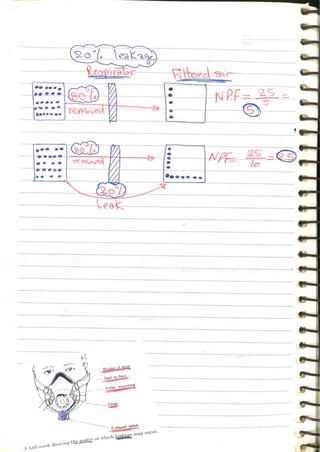 20% leakage
Respirator
Filtered air
80%
removed
NPF = 25/5 =
5
80%
removed
NPF = 25/10 = 2.5
20%
Leak
Bridge of nose
Seal to face
Filter mounting
Filter
Exhaust valve
A half mask showing the points at which leakage may occur.